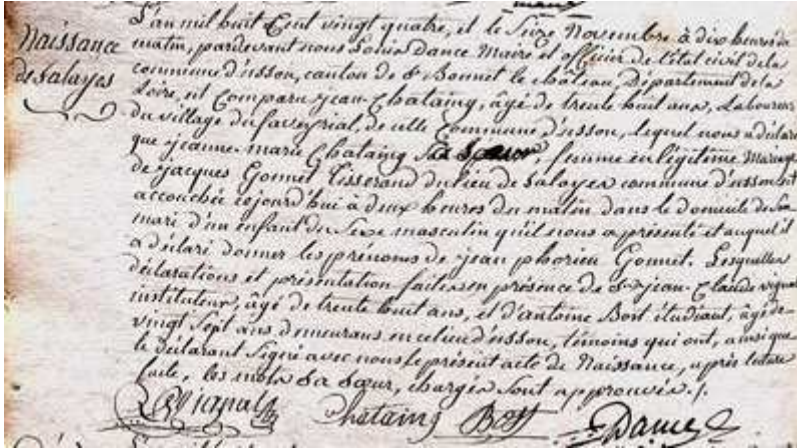 Naissance
de Salayes
L'an mil huit Cent vingt quatre, et le Seize Novembre à dix heures du
matin, pardevant nous Louis Dance Maire et officier de l'état civil de la
commune d'usson, canton de St Bonnet le château, Département de la
Loire, est Comparu jean Chataing, âgé de trente huit ans, Laboureur
du village du faveyrial, de cette Commune d'usson, lequel nous a déclaré
que jeanne-marie Chataing sa Sœur, femme en légitime Mariage
de jacques Gonnet Tisserand du lieu de Salayes commune d'usson est
accouchée cejourd'hui à deux heures du matin dans le domicile de son
mari d'un enfant du Sexe masculin qu'il nous a présenté et auquel il
a déclaré donner les prénoms de jean Gonnet. Lesquelles
déclarations et présentation faites en présence de Sr jean-Claude vignal
instituteur, âgé de trente huit ans, et d'antoine Bost étudiant, âgé de
vingt Sept ans demeurans en ce lieu d'usson, témoins qui ont, ainsi que
le déclarant Signé avec nous le présent acte de Naissance, après lecture
faite, les mots Sa Sœur, chargés Sont approuvés ./.
Vignal Chataing Bost Dance